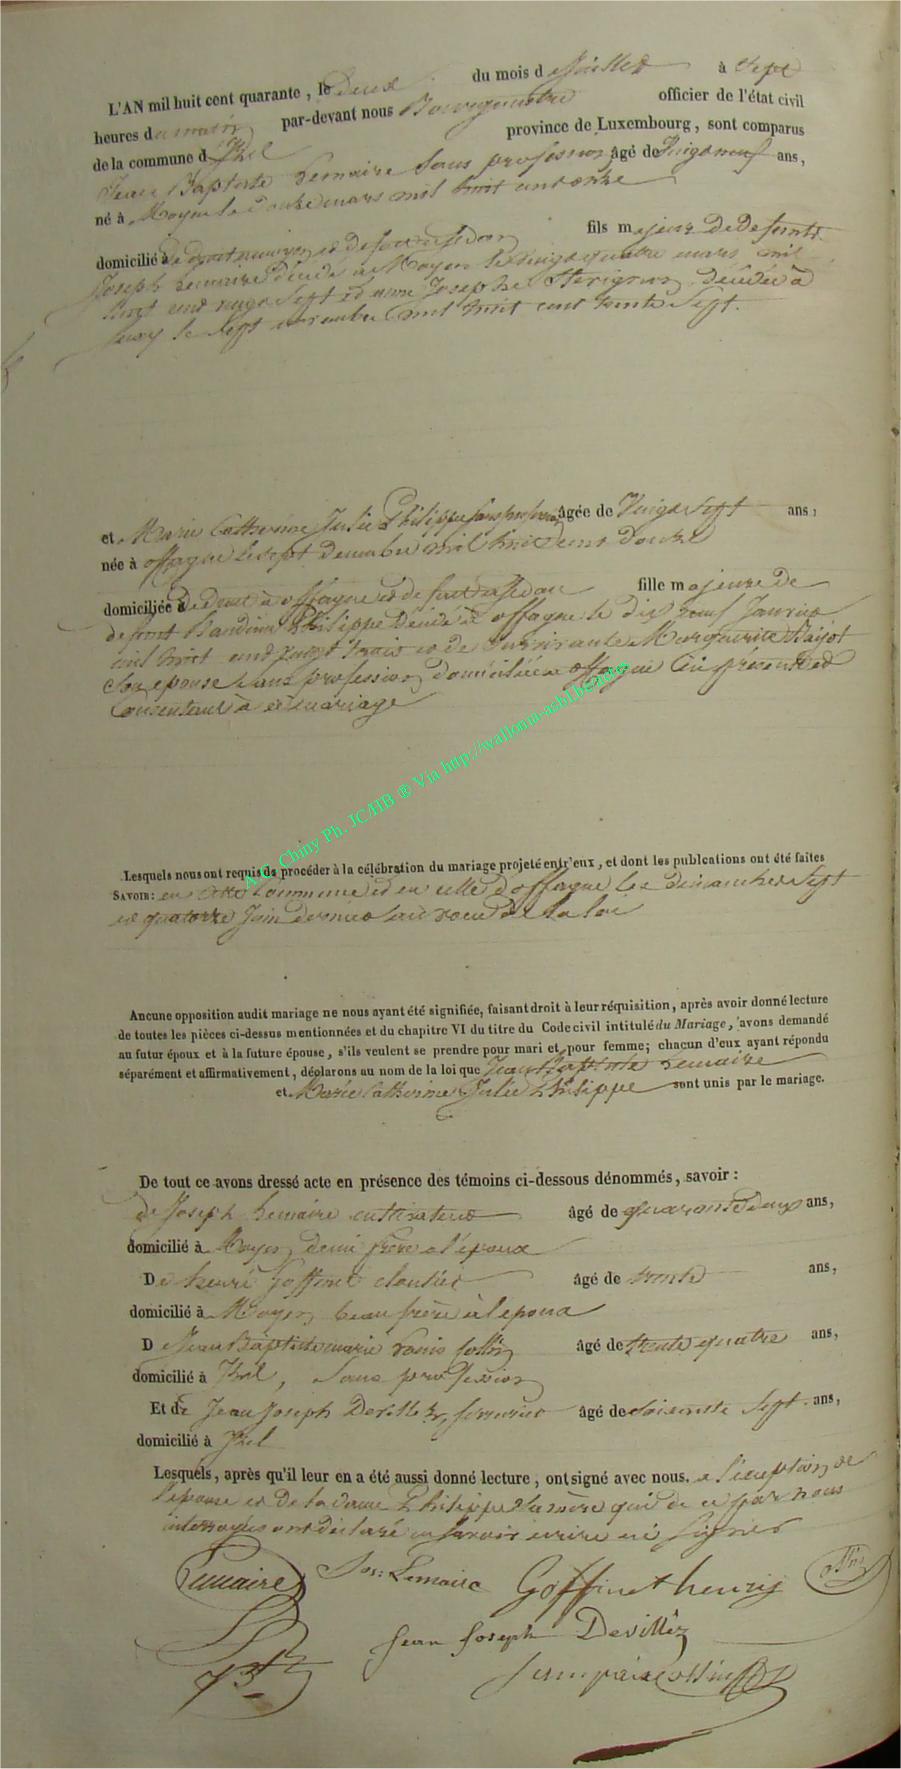 L'AN mil huit cent quarante, le deux du mois de Juillet à Sept
heures du matin par-devant nous Bourgmestre officier de l'état civil
de la commune d'Izel province de Luxembourg, sont comparus
Jean Baptiste Lemaire Sans profession âgé de Vingt neuf ans,
né à Moyen le mars mil huit cent onze
domicilié de droit à moyen et de fait à fils majeur de Defunts
Joseph Lemaire décédé à Moyen le vingt quatre mars mil
huit cent vingt Sept et Anne Josephe décédée à
Suxy le Sept novembre mil huit cent trente Sept.
et Marie Catherine Julie Philippe sans profession âgée de Vingt Sept ans,
née à offagne le sept Decembre mil huit cent douze
domiciliée de droit à offagne et de fait à fille majeure de
defunt Philippe Décédé à offagne le dix neuf Janvier
mil huit cent vingt trois et de Survivante Marguerite
Son epouse sans profession domiciliée à offagne ici présente et
Consentant à ce mariage
A.C. Chiny Ph. JCHB ® Via http://wallonia-asbl.be
Lesquels nous ont requis de procéder à la célébration du mariage projeté entr'eux, et dont les publcations ont été faites
SAVOIR: en Cette Commune et en celle d'offagne les dimanches Sept
et quatorze Juin dernier au voeu de la loi
Aucune opposition audit mariage ne nous ayant été signifiée, faisant droit à leur réquisition, après avoir donné lecture
de toutes les pièces ci-dessus mentionnées et du chapitre VI du titre du Code civil intitulé du Mariage, avons demandé
au futur époux et à la future épouse, s'ils veulent se prendre pour mari et pour femme; chacun d'eux ayant répondu
séparément et affirmativement, déclarons au nom de la loi que Jean Baptiste Lemaire
et Marie Catherine Julie Philippe sont unis par le mariage.
De tout ce avons dressé acte en présence des témoins ci-dessous dénommés, savoir:
de Joseph Lemaire cultivateur âgé de quarante deux ans,
domicilié à Moyen demi frère à l'époux
De henri Goffinet cloutier âgé de trente ans,
domicilié à Moyen beau frère à l'epoux
D Jean Baptiste marie Louis Collin âgé de trente quatre ans,
domicilié à Izel, Sans profession
Et de Jean Joseph Devillez, serrurier âgé de soixante Sept ans,
domicilié à Izel
Lesquels, après qu'il leur en a été aussi donné lecture, ont signé avec nous. à l'exception de
l'epouse et de la dame Philippe sa mère qui de ce par nous
interrogées ont déclaré ne Savoir écrire ni Signer
Lemaire Jos: Lemaire Goffinet henry
Jean Joseph Devillez